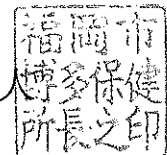 福岡市
人
博多保健
所長之印